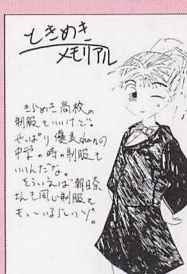 ときめき
メモリアル
きらめき高校の
制服もいいけど、
やっぱり優美ちゃんの
中学の時の制服も
いいんだな。
そういえば朝日奈
さんも同じ制服を
もっているらしいゾ。